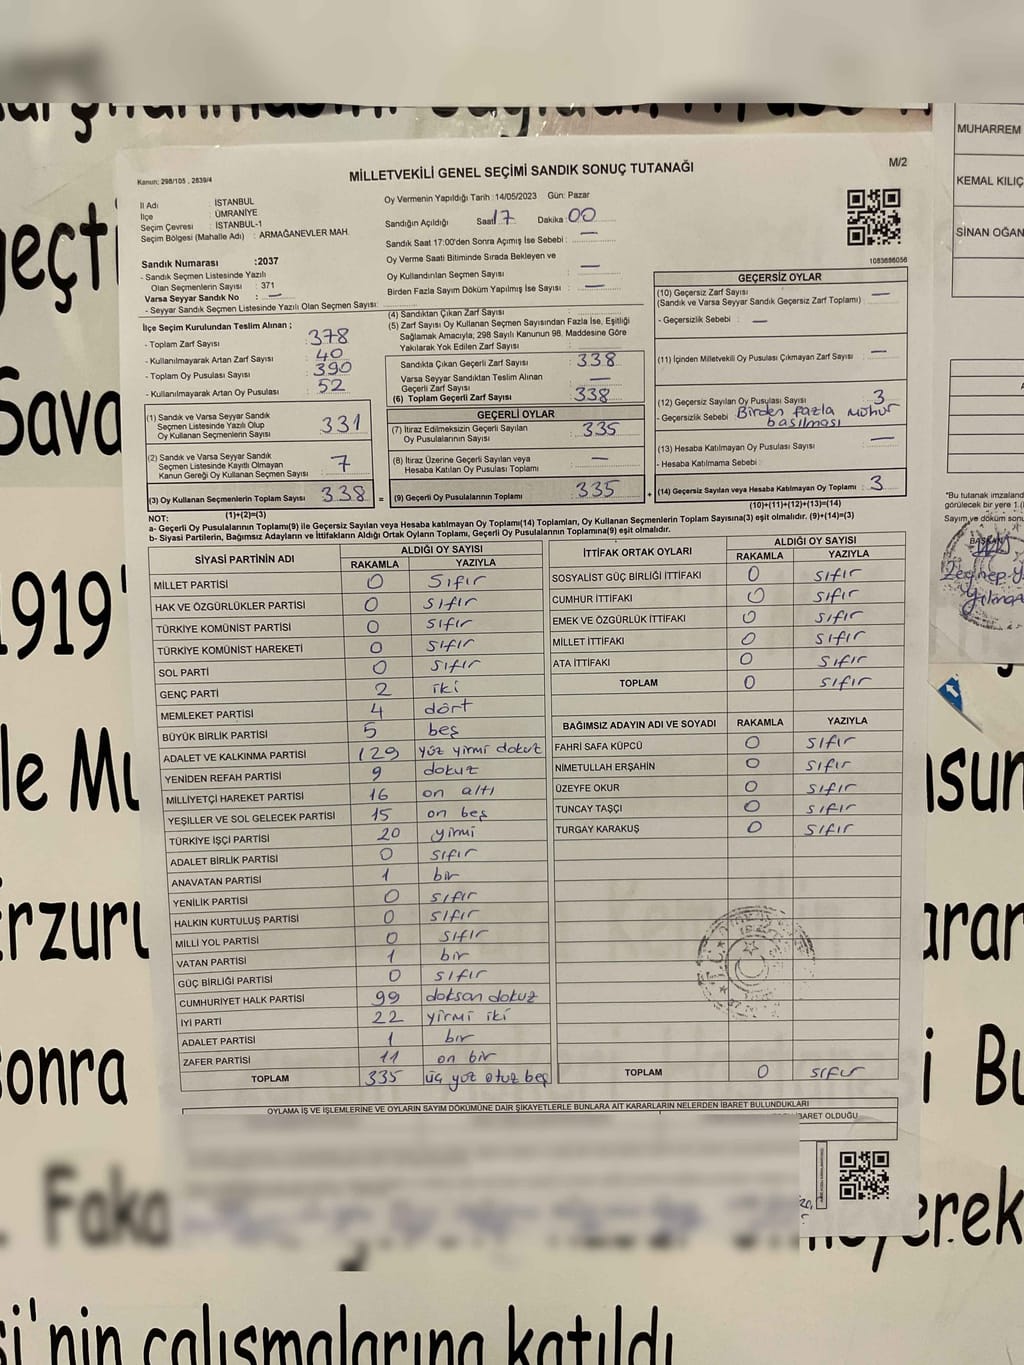 MİLLETVEKİLİ GENEL SEÇİMİ SANDIK SONUÇ TUTANAĞI
M/2
Kanun; 298/105 , 2839/4
İl Adı : İSTANBUL
İlçe : ÜMRANİYE
Seçim Çevresi : İSTANBUL-1
Seçim Bölgesi (Mahalle Adı) : ARMAĞANEVLER MAH.
Sandık Numarası :2037
- Sandık Seçmen Listesinde Yazılı
Olan Seçmenlerin Sayısı : 371
Varsa Seyyar Sandık No : —
- Seyyar Sandık Seçmen Listesinde Yazılı Olan Seçmen Sayısı:
Oy Vermenin Yapıldığı Tarih :14/05/2023 Gün: Pazar
Sandığın Açıldığı Saat 17 Dakika 00
Sandık Saat 17:00'den Sonra Açımış İse Sebebi : —
Oy Verme Saati Bitiminde Sırada Bekleyen ve
Oy Kullandırılan Seçmen Sayısı : —
Birden Fazla Sayım Döküm Yapılmış İse Sayısı : —
1083686056
İlçe Seçim Kurulundan Teslim Alınan ;
- Toplam Zarf Sayısı : 378
- Kullanılmayarak Artan Zarf Sayısı : 40
- Toplam Oy Pusulası Sayısı : 390
- Kullanılmayarak Artan Oy Pusulası : 52
(1) Sandık ve Varsa Seyyar Sandık
Seçmen Listesinde Yazılı Olup
Oy Kullanan Seçmenlerin Sayısı 331
(2) Sandık ve Varsa Seyyar Sandık
Seçmen Listesinde Kayıtlı Olmayan
Kanun Gereği Oy Kullanan Seçmen Sayısı 7
(3) Oy Kullanan Seçmenlerin Toplam Sayısı 338 =
(1)+(2)=(3)
(4) Sandıktan Çıkan Zarf Sayısı :
(5) Zarf Sayısı Oy Kullanan Seçmen Sayısından Fazla İse, Eşitliği
Sağlamak Amacıyla; 298 Sayılı Kanunun 98. Maddesine Göre
Yakılarak Yok Edilen Zarf Sayısı :
Sandıkta Çıkan Geçerli Zarf Sayısı : 338
Varsa Seyyar Sandıktan Teslim Alınan
Geçerli Zarf Sayısı : —
(6) Toplam Geçerli Zarf Sayısı : 338
GEÇERLİ OYLAR
(7) İtiraz Edilmeksizin Geçerli Sayılan
Oy Pusulalarının Sayısı : 335
(8) İtiraz Üzerine Geçerli Sayılan veya
Hesaba Katılan Oy Pusulası Toplamı : —
(9) Geçerli Oy Pusulalarının Toplamı : 335 +
GEÇERSİZ OYLAR
(10) Geçersiz Zarf Sayısı : —
(Sandık ve Varsa Seyyar Sandık Geçersiz Zarf Toplamı)
- Geçersizlik Sebebi : —
(11) İçinden Milletvekili Oy Pusulası Çıkmayan Zarf Sayısı : —
(12) Geçersiz Sayılan Oy Pusulası Sayısı : 3
- Geçersizlik Sebebi : Birden fazla mühür
basılması
(13) Hesaba Katılmayan Oy Pusulası Sayısı : —
- Hesaba Katılmama Sebebi :
(14) Geçersiz Sayılan veya Hesaba Katılmayan Oy Toplamı : 3
(10)+(11)+(12)+(13)=(14)
NOT:
a- Geçerli Oy Pusulalarının Toplamı(9) ile Geçersiz Sayılan veya Hesaba katılmayan Oy Toplamı(14) Toplamları, Oy Kullanan Seçmenlerin Toplam Sayısına(3) eşit olmalıdır. (9)+(14)=(3)
b- Siyasi Partilerin, Bağımsız Adayların ve İttifakların Aldığı Ortak Oyların Toplamı, Geçerli Oy Pusulalarının Toplamına(9) eşit olmalıdır.
SİYASİ PARTİNİN ADI ALDIĞI OY SAYISI
RAKAMLA YAZIYLA
MİLLET PARTİSİ 0 sıfır
HAK VE ÖZGÜRLÜKLER PARTİSİ 0 sıfır
TÜRKİYE KOMÜNİST PARTİSİ 0 sıfır
TÜRKİYE KOMÜNİST HAREKETİ 0 sıfır
SOL PARTİ 0 sıfır
GENÇ PARTİ 2 iki
MEMLEKET PARTİSİ 4 dört
BÜYÜK BİRLİK PARTİSİ 5 beş
ADALET VE KALKINMA PARTİSİ 129 yüz yirmi dokuz
YENİDEN REFAH PARTİSİ 9 dokuz
MİLLİYETÇİ HAREKET PARTİSİ 16 on altı
YEŞİLLER VE SOL GELECEK PARTİSİ 15 on beş
TÜRKİYE İŞÇİ PARTİSİ 20 yirmi
ADALET BİRLİK PARTİSİ 0 sıfır
ANAVATAN PARTİSİ 1 bir
YENİLİK PARTİSİ 0 sıfır
HALKIN KURTULUŞ PARTİSİ 0 sıfır
MİLLİ YOL PARTİSİ 0 sıfır
VATAN PARTİSİ 1 bir
GÜÇ BİRLİĞİ PARTİSİ 0 sıfır
CUMHURİYET HALK PARTİSİ 99 doksan dokuz
İYİ PARTİ 22 yirmi iki
ADALET PARTİSİ 1 bir
ZAFER PARTİSİ 11 on bir
TOPLAM 335 üç yüz otuz beş
İTTİFAK ORTAK OYLARI ALDIĞI OY SAYISI
RAKAMLA YAZIYLA
SOSYALİST GÜÇ BİRLİĞİ İTTİFAKI 0 sıfır
CUMHUR İTTİFAKI 0 sıfır
EMEK VE ÖZGÜRLÜK İTTİFAKI 0 sıfır
MİLLET İTTİFAKI 0 sıfır
ATA İTTİFAKI 0 sıfır
TOPLAM 0 sıfır
BAĞIMSIZ ADAYIN ADI VE SOYADI RAKAMLA YAZIYLA
FAHRİ SAFA KÜPCÜ 0 sıfır
NİMETULLAH ERŞAHİN 0 sıfır
ÜZEYFE OKUR 0 sıfır
TUNCAY TAŞÇI 0 sıfır
TURGAY KARAKUŞ 0 sıfır
TOPLAM 0 sıfır
OYLAMA İŞ VE İŞLEMLERİNE VE OYLARIN SAYIM DÖKÜMÜNE DAİR ŞİKAYETLERLE BUNLARA AİT KARARLARIN NELERDEN İBARET BULUNDUKLARI
İBARET OLDUĞU
MUHARREM
KEMAL KILIÇ
SİNAN OĞAN
"Bu tutanak imzaland
görülecek bir yere 1.(
Sayım ve döküm sonu
BAŞKAN
Zeynep
geçti
Sava
1919'
le Mu
erzuru
sonra
Faka
asun
arar
i Bu
erek
si'nin çalışmalarına katıldı